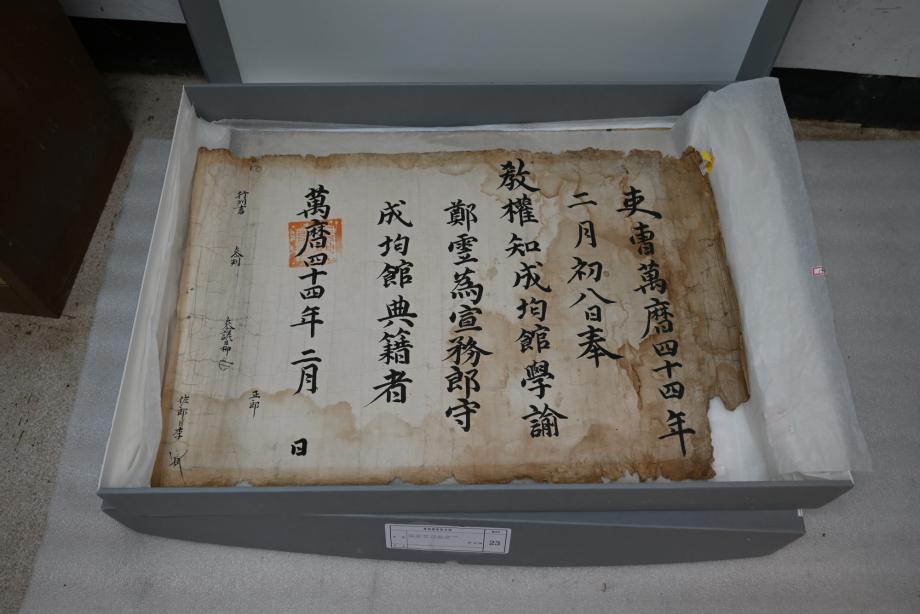 吏曹萬曆四十四年
二月初八日奉
敎權知成均館學諭
鄭霊為宣務郎守
成均館典籍者
萬曆四十四年二月 日
正郎
參議臣
參判
行判書
佐郎臣李
23